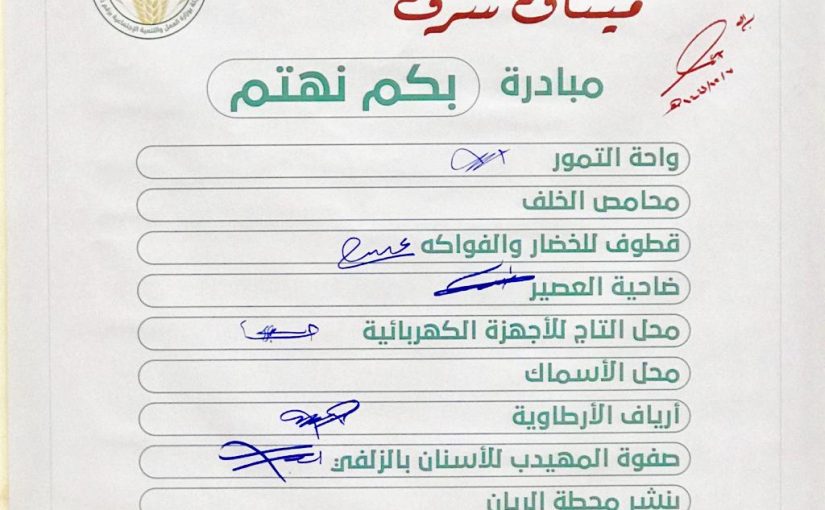 بوزارة العمل والتنمية الاجتماعية برقم
ميثاق شرف
مبادرة بكم نهتم
واحة التمور
محامص الخلف
قطوف للخضار والفواكه
ضاحية العصير
محل التاج للأجهزة الكهربائية
محل الأسماك
أرياف الأرطاوية
صفوة المهيدب للأسنان بالزلفي
بنشر محطة الريان